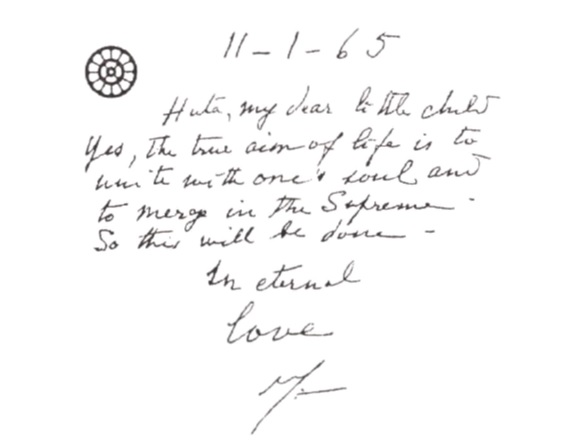 11-1-65
Huta, my dear little child
Yes, the true aim of life is to
unite with one's soul and
to merge in the Supreme.
So this will be done -
In eternal
love